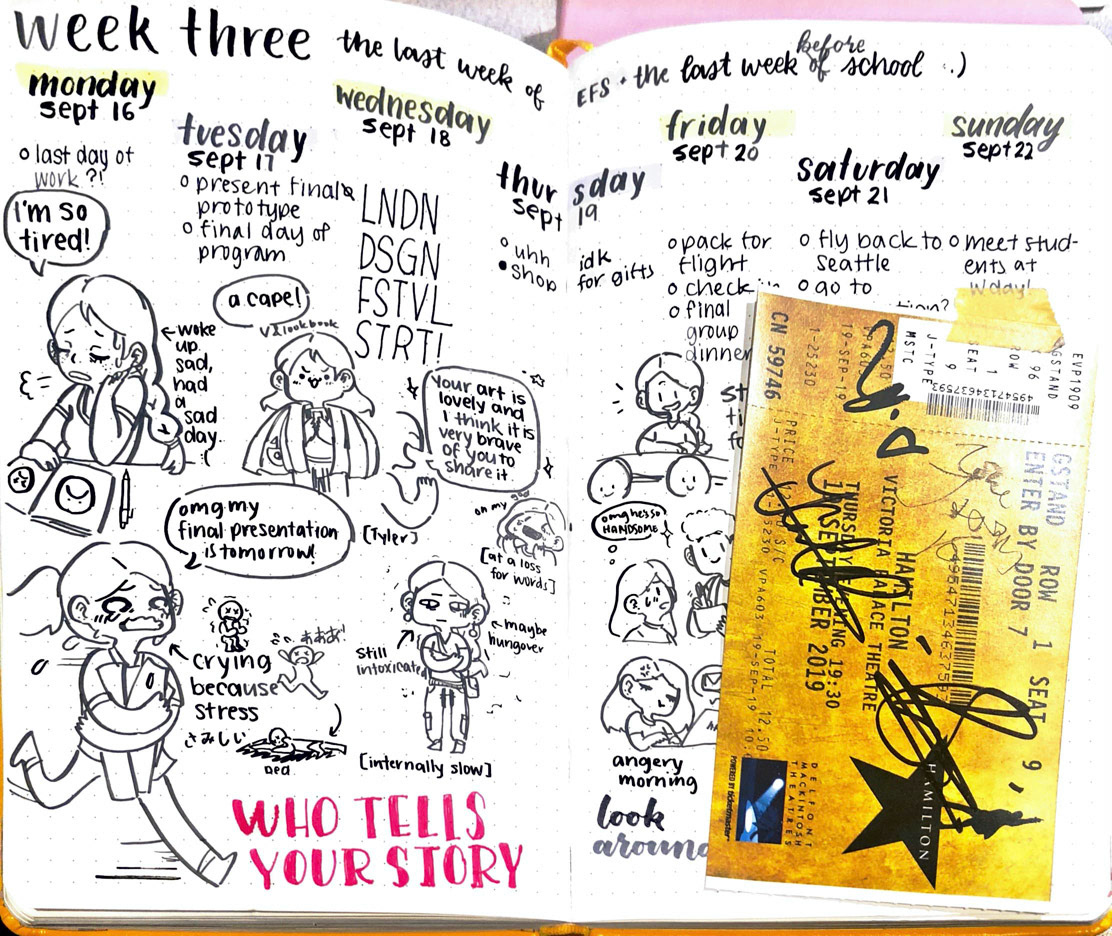 week three the last week of
EFS · the last week before
of school :)
monday
sept 16
o last day of
work ?!
I'm so
tired!
← woke
up
sad,
had
a
sad
day..
:(
tuesday
sept 17
o present final
prototype
o final day of
program
a cape!
omg my
final presentation
is tomorrow!
crying
because
stress
さみしい
あああ!
ded
wednesday
sept 18
LNDN
DSGN
FSTVL
STRT!
Your art is
lovely and
I think it is
very brave
of you to
share it
[Tyler]
oh my
god
[at a loss
for words]
still
intoxicated
← maybe
hungover
[internally slow]
WHO TELLS
YOUR STORY
thursday
sept 19
o uhh idk
• shop for gifts
omg he so
HANDSOME
angery
morning
look
around
friday
sept 20
o pack for
flight
o check in
o final
group
dinner
saturday
sept 21
o fly back to
seattle
o go to
tion?
sunday
sept 22
o meet stud-
ents at
wday!
EVP1909
GSTAND
ROW 96
SEAT 1
J-TYPE 9
MSTC
4954713463759
19-SEP-19
1-25230
CN 59746
GSTAND ROW 1 SEAT 9
ENTER BY DOOR 7
HAMILTON
VICTORIA PALACE THEATRE
THURSDAY EVENING 19:30
19 SEPTEMBER 2019
PRICE
J-TYPE
S/C
TOTAL 12.50
VPA603 19-SEP-19
DELFONT
MACKINTOSH
THEATRES
POWERED BY ticketmaster
HAMILTON